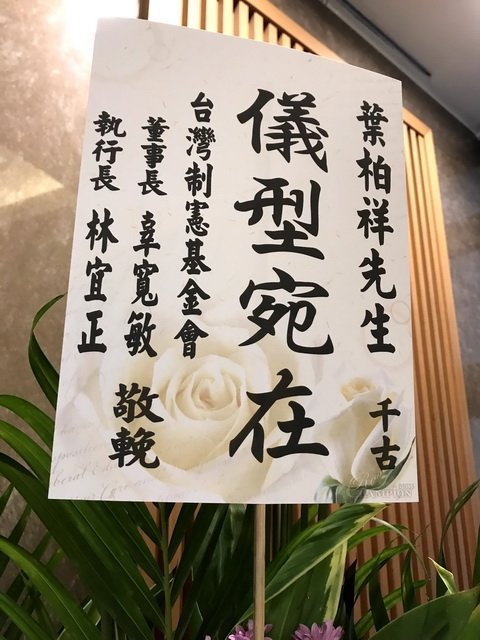 葉柏祥先生 千古
儀型宛在
台灣制憲基金會
董事長 辜寬敏 敬輓
執行長 林宜正